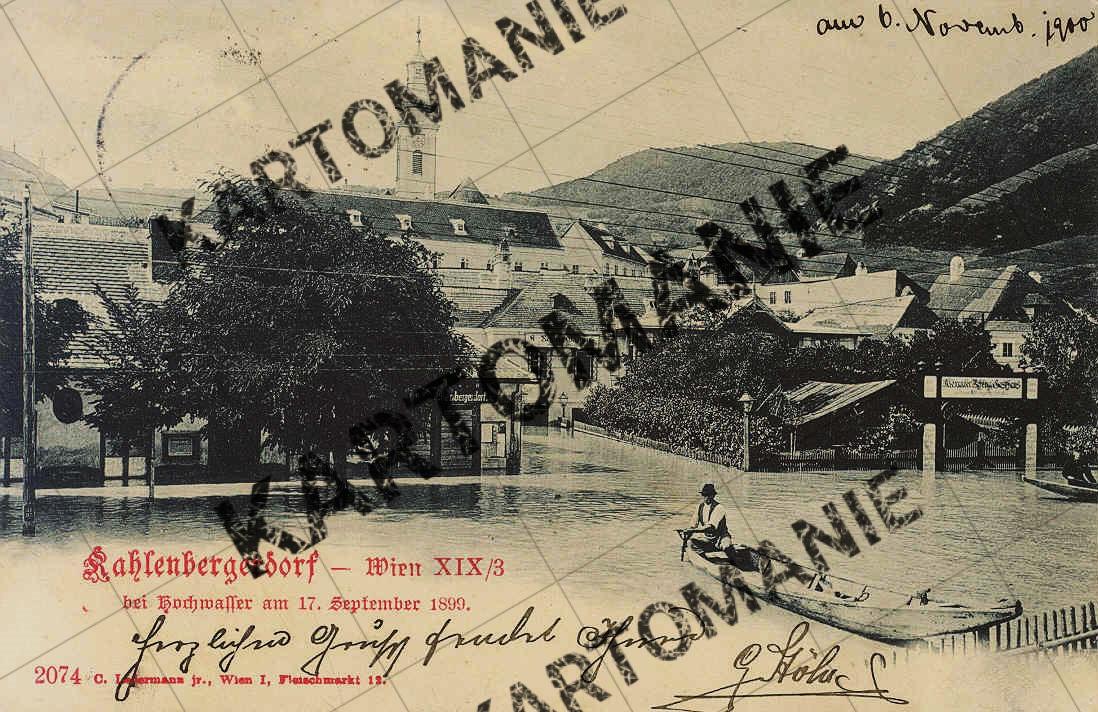 am 6. Novemb. 1900
KARTOMANIE
KARTOMANIE
KARTOMANIE
KARTOMANIE
KARTOMANIE
Kahlenbergerdorf – Wien XIX/3
bei Hochwasser am 17. September 1899.
Herzlichen Gruß sendet Ihnen
2074 C. Ledermann jr., Wien I, Fleischmarkt 12.